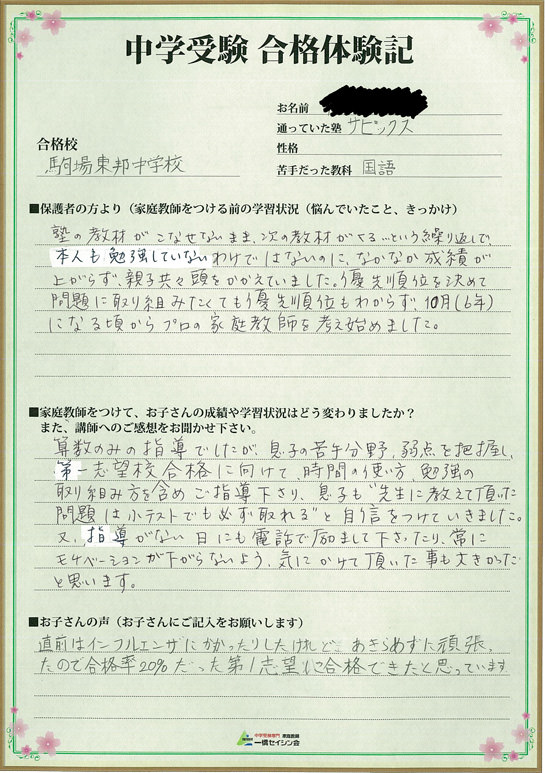 中学受験 合格体験記
お名前
通っていた塾 サピックス
合格校
性格
駒場東邦中学校
苦手だった教科 国語
■保護者の方より（家庭教師をつける前の学習状況（悩んでいたこと、きっかけ）
塾の教材がこなせないまま、次の教材がくる…という繰り返しで
本人も勉強していないわけではないのに、なかなか成績が
上がらず、親子共々頭をかかえていました。優先順位を決めて
問題に取り組みたくても優先順位もわからず、10月(6年)
になる頃からプロの家庭教師を考え始めました。
■家庭教師をつけて、お子さんの成績や学習状況はどう変わりましたか？
また、講師へのご感想をお聞かせ下さい。
算数のみの指導でしたが、息子の苦手分野、弱点を把握し、
第一志望校合格に向けて、時間の使い方、勉強の
取り組み方を含めご指導下さり、息子も"先生に教えて頂いた
問題は小テストでも必ず取れる"と自信をつけていきました。
又、指導がない日にも電話で励まして下さったり、常に
モチベーションが下がらないよう、気にかけて頂いた事も大きかった
と思います。
■お子さんの声（お子さんにご記入をお願いします）
直前はインフルエンザにかかったりしたけれど、あきらめずに頑張っ
たので合格率20%だった第1志望に合格できたと思っています
中学受験専門 家庭教師
一橋セイシン会